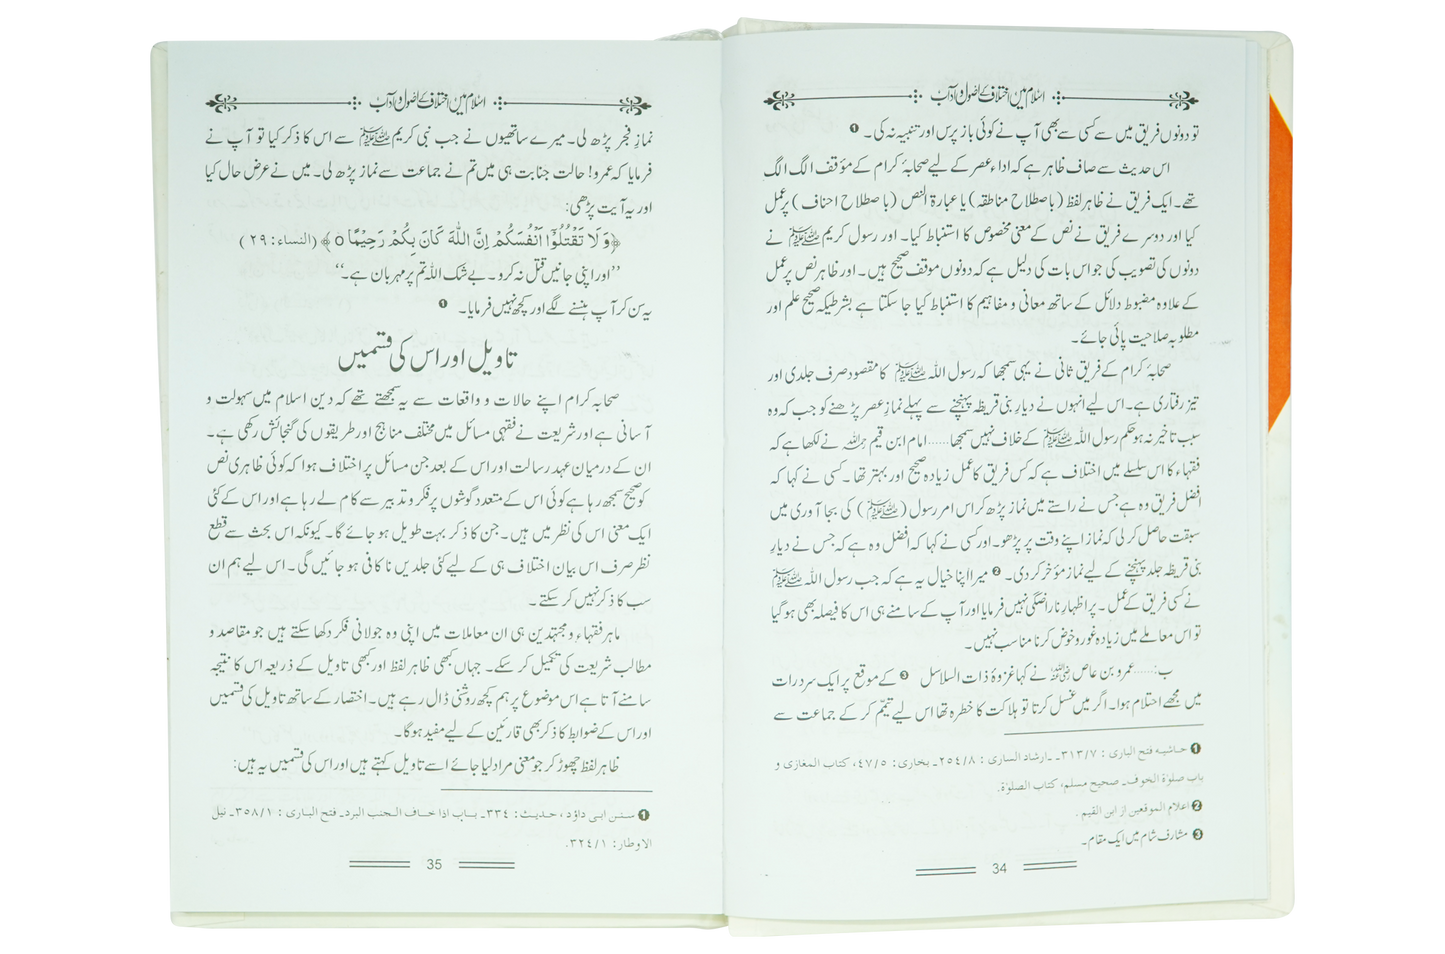 اسلام میں اختلاف کے اصول و آداب
تو دونوں فریق میں سے کسی سے بھی آپ نے کوئی باز پرس اور تنبیہ نہ کی۔ ❶
اس حدیث سے صاف ظاہر ہے کہ اداء عصر کے لیے صحابۂ کرام کے مؤقف الگ الگ
تھے۔ ایک فریق نے ظاہر لفظ (باصطلاح مناطقہ) یا عبارۃ النص (باصطلاح احناف) پر عمل
کیا اور دوسرے فریق نے نص کے معنی مخصوص کا استنباط کیا۔ اور رسول کریم ﷺ نے
دونوں کی تصویب کی جو اس بات کی دلیل ہے کہ دونوں موقف صحیح ہیں۔ اور ظاہر نص پر عمل
کے علاوہ مضبوط دلائل کے ساتھ معانی و مفاہیم کا استنباط کیا جا سکتا ہے بشرطیکہ صحیح علم اور
مطلوبہ صلاحیت پائی جائے۔
صحابۂ کرام کے فریق ثانی نے یہی سمجھا کہ رسول اللہ ﷺ کا مقصود صرف جلدی اور
تیز رفتاری ہے۔ اس لیے انہوں نے دیارِ بنی قریظہ پہنچنے سے پہلے نماز عصر پڑھنے کو جب کہ وہ
سبب تاخیر نہ ہو حکم رسول اللہ ﷺ کے خلاف نہیں سمجھا ...... امام ابن قیم رحمہ اللہ نے لکھا ہے کہ
فقہاء کا اس سلسلے میں اختلاف ہے کہ کس فریق کا عمل زیادہ صحیح اور بہتر تھا۔ کسی نے کہا کہ
افضل فریق وہ ہے جس نے راستے میں نماز پڑھ کر اس امر رسول (ﷺ) کی بجا آوری میں
سبقت حاصل کر لی کہ نماز اپنے وقت پر پڑھو۔ اور کسی نے کہا کہ افضل وہ ہے کہ جس نے دیارِ
بنی قریظہ جلد پہنچنے کے لیے نماز مؤخر کر دی۔ ❷ میرا اپنا خیال یہ ہے کہ جب رسول اللہ ﷺ
نے کسی فریق کے عمل۔ پر اظہارِ ناراضگی نہیں فرمایا اور آپ کے سامنے ہی اس کا فیصلہ بھی ہو گیا
تو اس معاملے میں زیادہ غور و خوض کرنا مناسب نہیں۔
ب: ...... عمرو بن عاص رضی اللہ عنہ نے کہا غزوۂ ذات السلاسل ❸ کے موقع پر ایک سرد رات
میں مجھے احتلام ہوا۔ اگر میں غسل کرتا تو ہلاکت کا خطرہ تھا اس لیے تیمم کر کے جماعت سے
❶ حاشیہ فتح الباری : ٣١٣/٧۔ ارشاد الساری : ٢٥٤/٨۔ بخاری : ٤٧/٥، کتاب المغازی و
باب صلوٰۃ الخوف۔ صحیح مسلم، کتاب الصلوٰۃ.
❷ اعلام الموقعین از ابن القیم.
❸ مشارف شام میں ایک مقام۔
34
اسلام میں اختلاف کے اصول و آداب
نماز فجر پڑھ لی۔ میرے ساتھیوں نے جب نبی کریم ﷺ سے اس کا ذکر کیا تو آپ نے
فرمایا کہ عمرو! حالت جنابت ہی میں تم نے جماعت سے نماز پڑھ لی۔ میں نے عرض حال کیا
اور یہ آیت پڑھی:
﴿وَلَا تَقْتُلُوْٓا اَنْفُسَكُمْ اِنَّ اللّٰهَ كَانَ بِكُمْ رَحِيْمًا ٥﴾ (النساء: ٢٩)
’’اور اپنی جانیں قتل نہ کرو۔ بے شک اللہ تم پر مہربان ہے۔‘‘
یہ سن کر آپ ہنسنے لگے اور کچھ نہیں فرمایا۔ ❶
تاویل اور اس کی قسمیں
صحابہ کرام اپنے حالات و واقعات سے یہ سمجھتے تھے کہ دین اسلام میں سہولت و
آسانی ہے اور شریعت نے فقہی مسائل میں مختلف مناہج اور طریقوں کی گنجائش رکھی ہے۔
ان کے درمیان عہد رسالت اور اس کے بعد جن مسائل پر اختلاف ہوا کہ کوئی ظاہری نص
کو صحیح سمجھ رہا ہے کوئی اس کے متعدد گوشوں پر فکر و تدبیر سے کام لے رہا ہے اور اس کے کئی
ایک معنی اس کی نظر میں ہیں۔ جن کا ذکر بہت طویل ہو جائے گا۔ کیونکہ اس بحث سے قطع
نظر صرف اس بیان اختلاف ہی کے لیے کئی جلدیں ناکافی ہو جائیں گی۔ اس لیے ہم ان
سب کا ذکر نہیں کر سکتے۔
ماہر فقہاء و مجتہدین ہی ان معاملات میں اپنی وہ جولانی فکر دکھا سکتے ہیں جو مقاصد و
مطالب شریعت کی تکمیل کر سکے۔ جہاں کبھی ظاہر لفظ اور کبھی تاویل کے ذریعہ اس کا نتیجہ
سامنے آتا ہے اس موضوع پر ہم کچھ روشنی ڈال رہے ہیں۔ اختصار کے ساتھ تاویل کی قسمیں
اور اس کے ضوابط کا ذکر بھی قارئین کے لیے مفید ہو گا۔
ظاہر لفظ چھوڑ کر جو معنی مراد لیا جائے اسے تاویل کہتے ہیں اور اس کی قسمیں یہ ہیں:
❶ سنن ابی داؤد ، حدیث : ٣٣٤۔ باب اذا خاف الجنب البرد۔ فتح الباری : ٣٥٨/١۔ نیل
الاوطار : ٣٢٤/١.
35